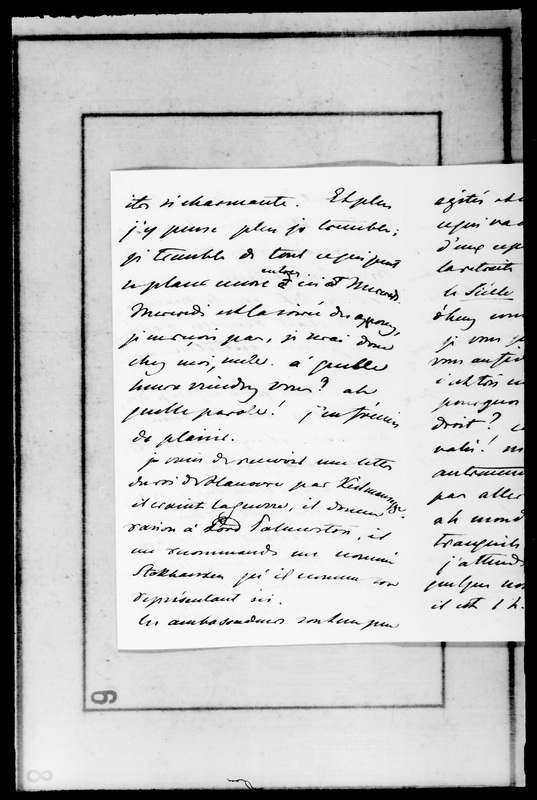 ites si charmante. Et plus
j'y pense plus je tremble;
je tremble de tout ce qui peut
se placer encore entre ci et Mercredi.
Mercredi est la soirée des appony,
je n'irai pas, je serai donc
chez moi, seule. à quelle
heure viendrez vous? ah
quelle parole! j'en frémis
de plaisir.
je viens de recevoir une lettre
du roi de Hanovre par
il craint la guerre, il donne
raison à Lord Palmerston, il
me recommande un nommé
Stokhausen qu'il nomme son
représentant ici.
les ambassadeurs sont un peu
agités et
ce qui va
d'une
la retraite
le Siècle
je vous
vous
pourquoi
droit?
autrement
par aller
ah mond
tranquille
j'attends
quelques
il est 1 h.
6
8